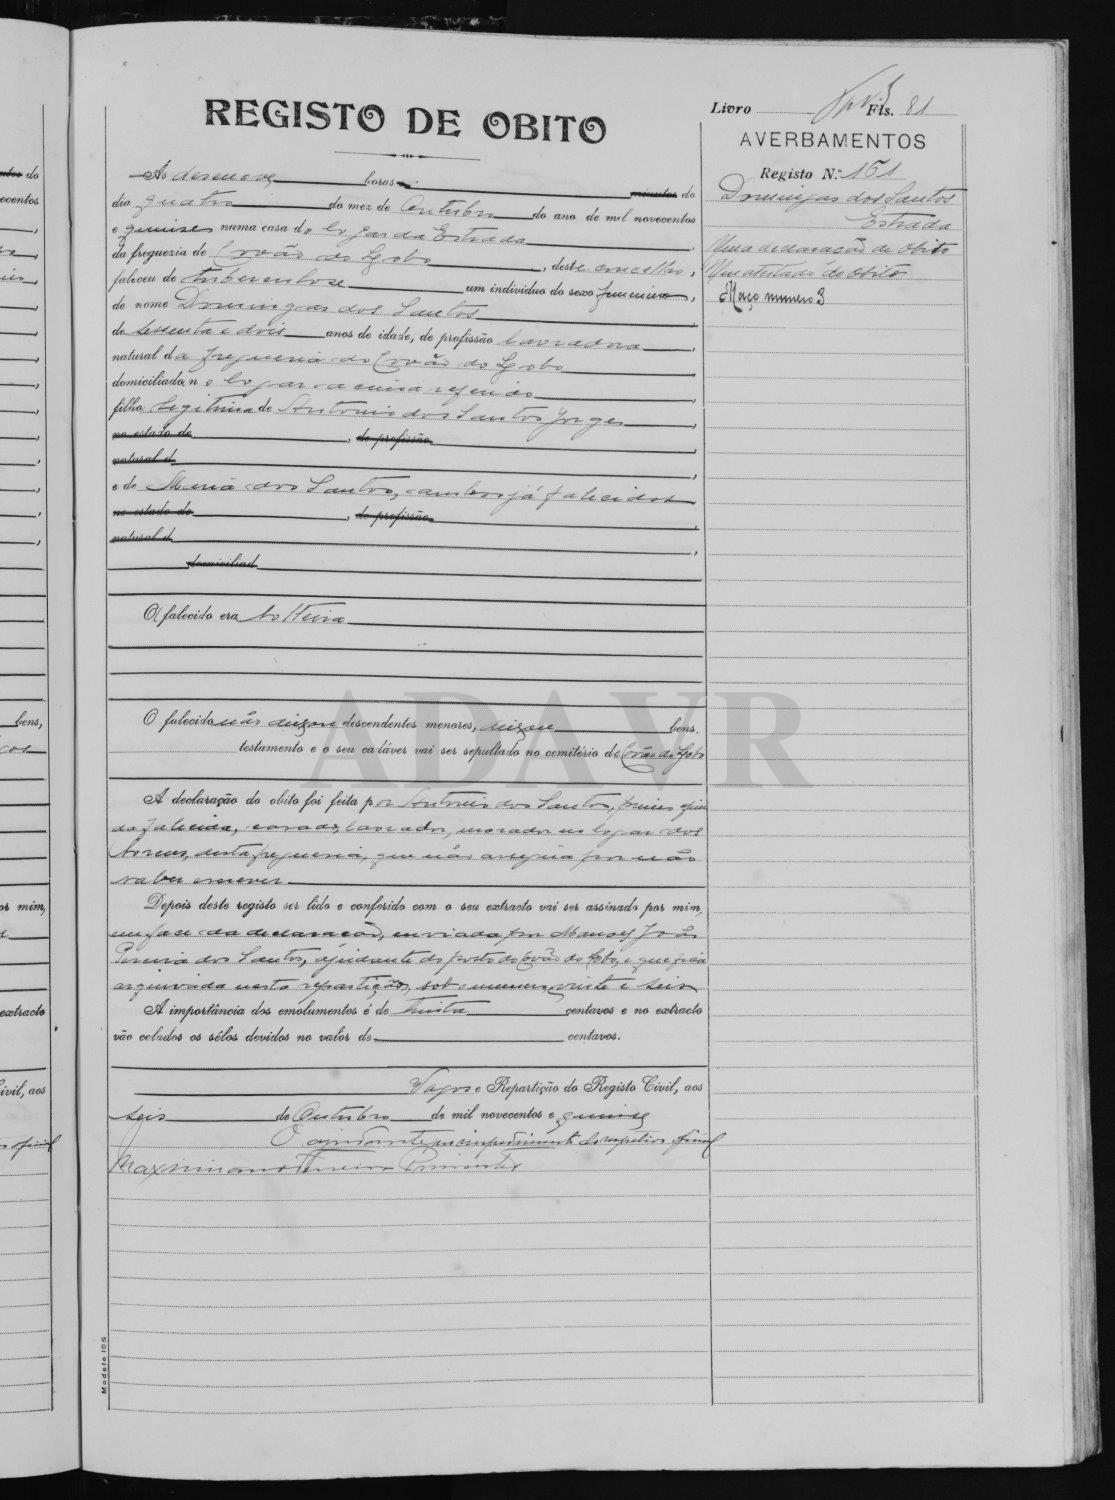 REGISTO DE OBITO
Livro Fls. 81
AVERBAMENTOS
Registo N.º 151
Domingas dos Santos
Estrada
Uma declaração de obito
Um atestado de obito
Maço numero 3
Ás desenove horas minutos do
dia quatro do mez de Outubro do ano de mil novecentos
e quinze numa casa do logar da Estrada,
da freguezia de Covão do Lobo, deste concelho,
faleceu de tuberculose um individuo do sexo feminino,
de nome Domingas dos Santos,
de sessenta e dois anos de idade, de profissão lavradora,
natural da freguesia do Covão do Lobo,
domiciliada no logar acima referido,
filha legitima de Antonio dos Santos Jorge,
no estado de, de profissão,
natural d,
e de Maria dos Santos, ambos já falecidos
no estado de, de profissão,
natural d,
domiciliad
O falecido era solteira
O falecido não deixou descendentes menores, deixou bens,
testamento e o seu cadáver vai ser sepultado no cemitério de Covão do Lobo
A declaração do obito foi feita por Antonio dos Santos, primo
da falecida, casado, lavrador, morador no logar dos
desta freguesia, que não assigna por não
saber escrever
Depois deste registo ser lido e conferido com o seu extracto vai ser assinado por mim,
em face da declaração, enviada por Manoel João
Pereira dos Santos, ajudante do posto do Covão do Lobo, e que fica
arquivada nesta repartição, sob o numero vinte e seis
A importância dos emolumentos é de trinta centavos e no extracto
vão colados os sêlos devidos no valor de centavos.
Vagos e Repartição do Registo Civil, aos
seis de Outubro de mil novecentos e quinze
O ajudante no impedimento do respetivo oficial
Maximiano Ferreira Pimentel
Modelo 105
ADAVR